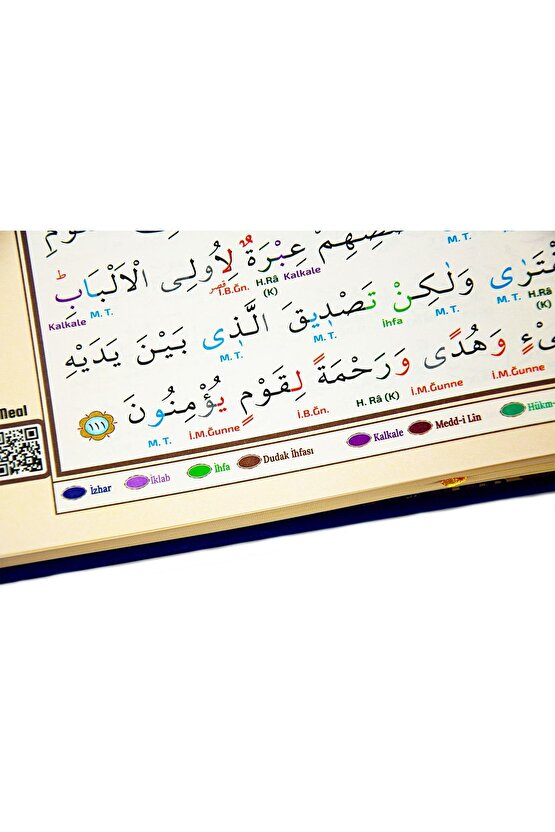 قَصَصِهِمْ عِبْرَةٌ لِاُولِى الْاَلْبَابِۜ
M. T.
ط
قصر
Kalkale
İ.B.Ğn.
H.Râ
(K)
Kalkale
M. T.
وَلٰكِنْ تَصْدٖيقَ الَّذٖى بَيْنَ يَدَيْهِ
M. T.
H.Râ
(K)
M. T.
İhfa
M. T.
M. T.
وَهُدًى وَرَحْمَةً لِقَوْمٍ يُؤْمِنُونَ
١١١
İ.M.Ğunne
İ.M.Ğunne
H. Râ (K)
İ.B.Ğn.
İ.M.Ğunne
M. T.
Meal
İzhar
İklab
İhfa
Dudak İhfası
Kalkale
Medd-i Lin